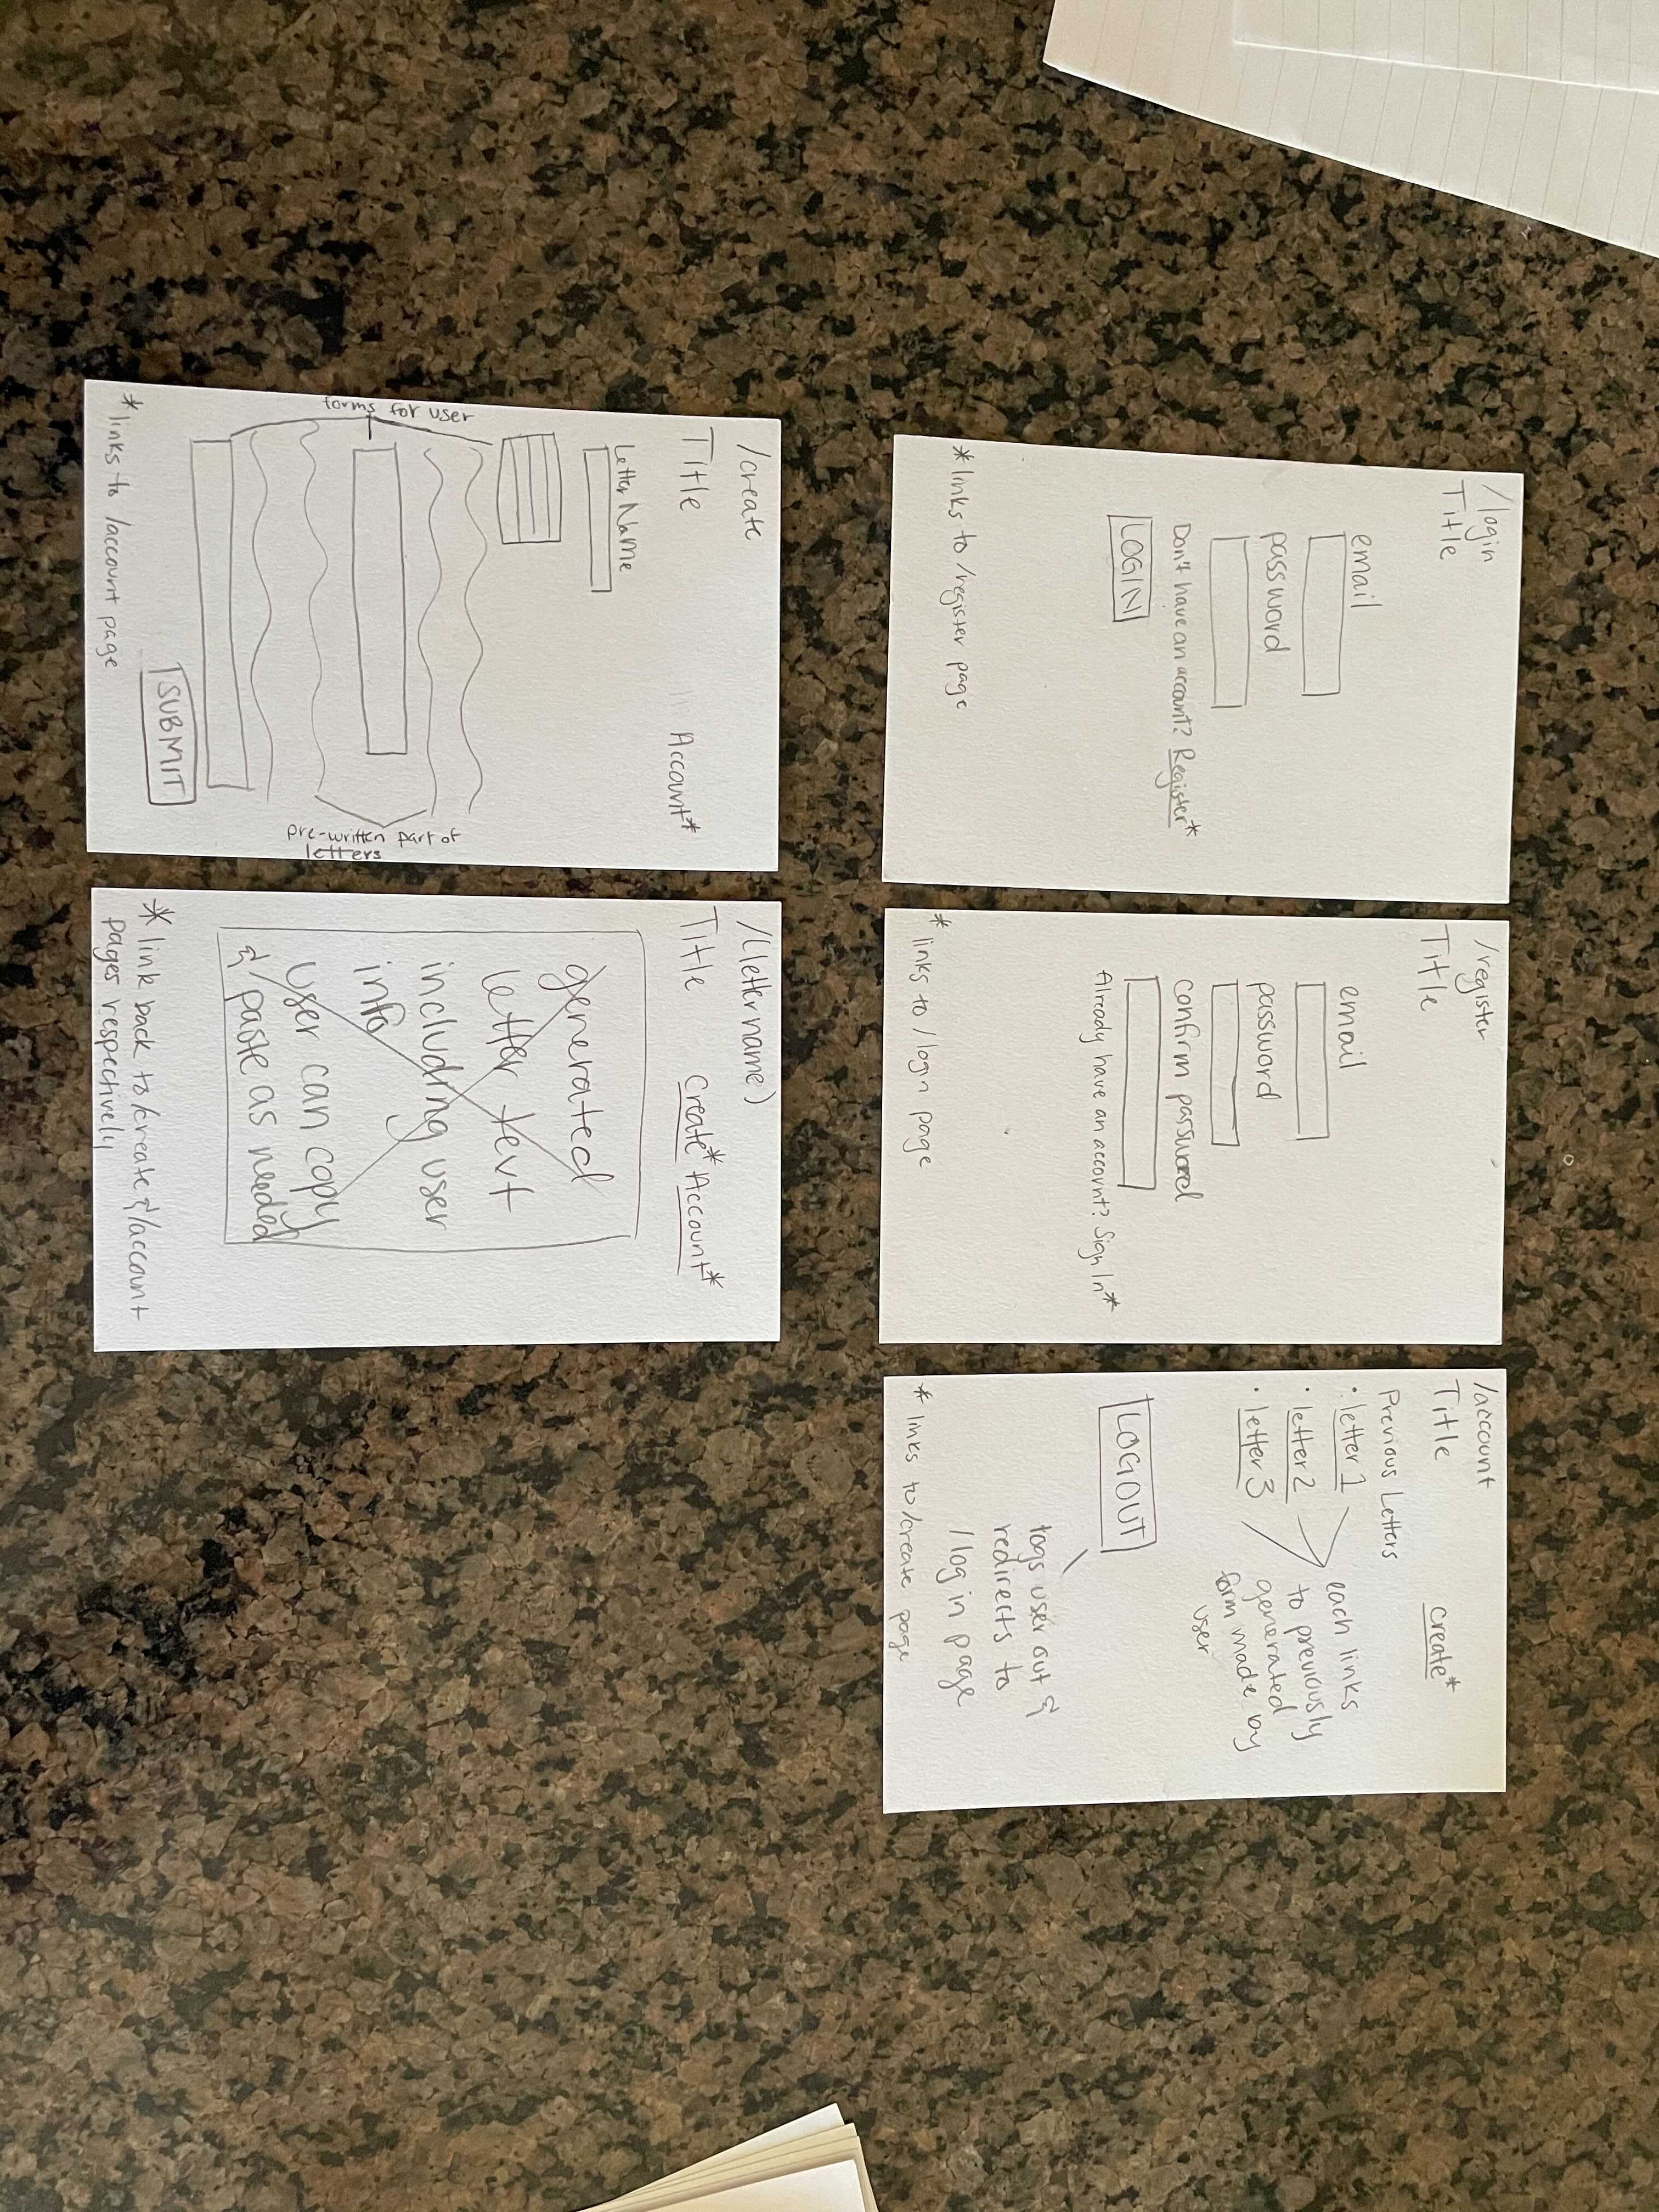 /login
Title
email
password
Don't have an account? Register*
LOGIN
*links to /register page
/register
Title
email
password
confirm password
Already have an account? Sign In*
* links to /login page
/account
Title
create*
Previous Letters
• letter 1
• letter 2
• letter 3
each links
to previously
generated
form made by
user
LOGOUT
logs user out &
redirects to
/login page
* links to /create page
/create
Title
Account*
Letter Name
forms for user
pre-written part of
letters
SUBMIT
*links to /account page
/(lettername)
Title create* Account*
generated
letter text
including user
info
user can copy
& paste as needed
* link back to /create & /account
pages respectively